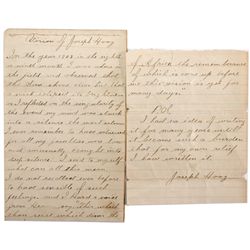 Vision of Joseph Hoag
In the year 1803 in the eighth
month I was one day in
the field and observed that
the sun shone clear but that
a mist eclipsed its brightness
I reflected on the singularity of
the event my mind was struck
into a silence the most solemn
I ever remember to have witnessed
for all my faculties were low
and unusually brought in to
deep silence. I said to myself
what can all this mean
I do not recollect ever before
to have been sensible of such
feelings and I heard a voice
from
of Africa the remembrance
of which is come up before
me this vision is yet for
many days."
I had no idea of writing
it for many years until
it became such a burden
that for my own relief
I have written it.
Joseph Hoag